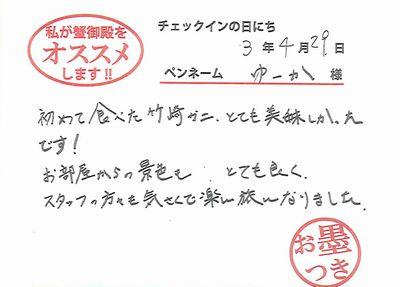 私が蟹御殿を
オススメ
します!!
チェックインの日にち
3年4月29日
ペンネーム ゆーか 様
初めて食べた竹崎ガニ、とても美味しかった
です!
お部屋からの景色も とても良く、
スタッフの方々も気さくで楽しい旅になりました。
お墨
つき